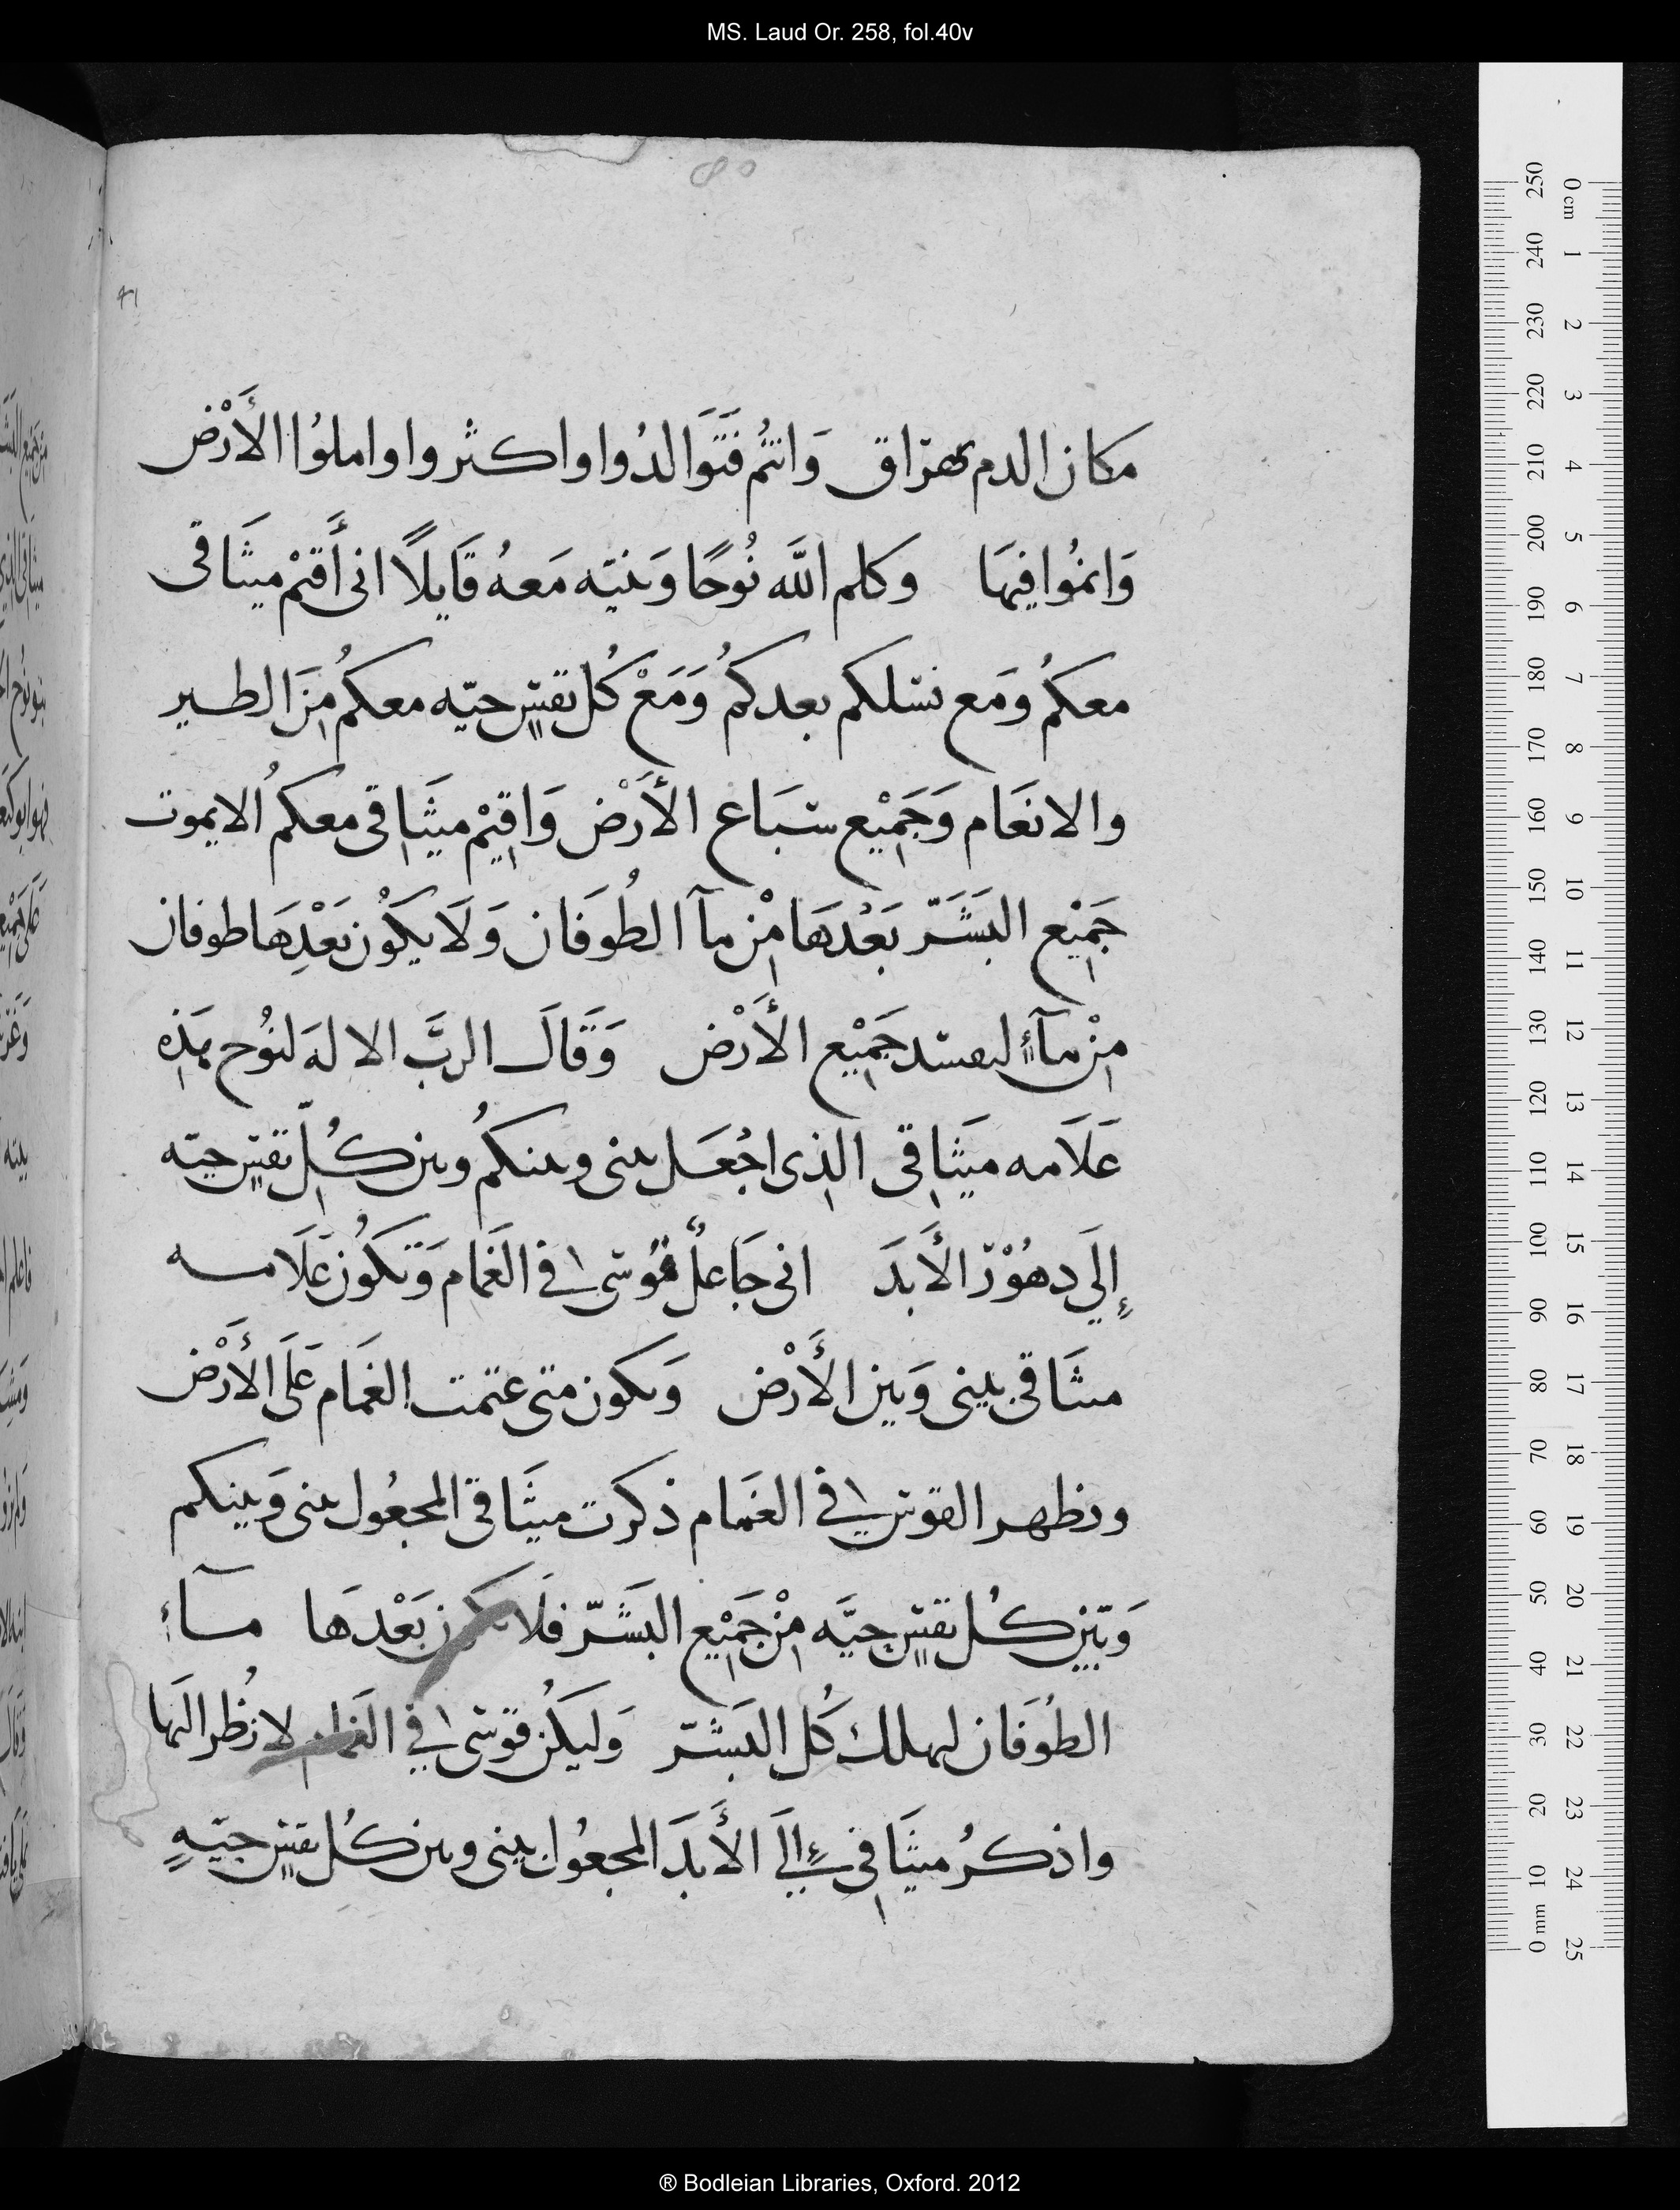 MS. Laud Or. 258, fol.40v
41
مكان الدم يهرَاق وَانتُم فَتَوَالدُوا واكثروا واملوُا الأَرْض
وَانمُوا فيهَا وكلم اللَّه نُوحًا وَبنيه مَعهُ قَايلاً انى أَقمْ ميثَاقى
معكمُ وَمَع نسلكم بعدكمُ وَمَعْ كُل نفسٍ حيّه معكمُ مِنَ الطير
والانعَام وَجَمِيْع سبَاع الأَرْض وَاقِيْم ميثَاقى معكمُ الا يموت
جَمِيْع البَشَرّ بَعْدهَا مِنْ مآ الطُوفَان وَلَا يكُون بَعْدِهَا طوفان
مِنْ مآءٍ ليفسد جَمِيْع الأَرْض وَقَالَ الربَّ الالهَ لنُوح هَذِه
عَلَامه ميثَاقِى الذِى اجْعَل بينى وبينكمُ وبين كُلِّ نفسٍ حيّه
إِلَي دهُوْرّ الأَبدَ انى جَاعلٌ قوُسى فى الغَمام وَتكُون عَلَامه
ميثَاقى بينى وَبين الأَرْض وَيكون متى غيمت الغمَام عَلَى الأَرْض
ويظهر القوس فى الغمَام ذكرت ميثَاقى المجعُول بينى وَبينكم
وَبَين كُل نفسٍ حيَّه مِنْ جَمِيْع البَشَرّ فلَا يكون بَعْدهَا مآء
الطُوفَان ليهلك كُل البَشَرّ وَليكُن قوسى فى الغمام لانظُر اليهَا
واذكرُ ميثَاقِى إِلَى الأَبدَ المجعُول بينى وبين كُل نفسٍ حيّهٍ
® Bodleian Libraries, Oxford. 2012